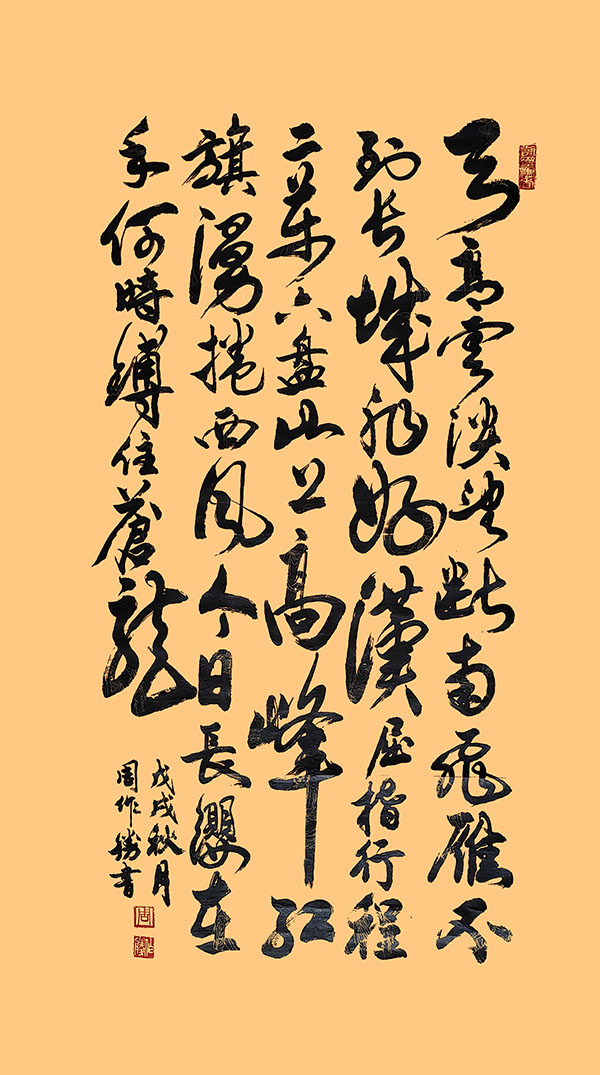 天高雲淡望斷南飛雁不
到长城非好漢屈指行程
二萬六盤山上高峰红
旗漫捲西风今日长纓在
手何時縛住蒼龍
戊戌秋月
周作勝書
周